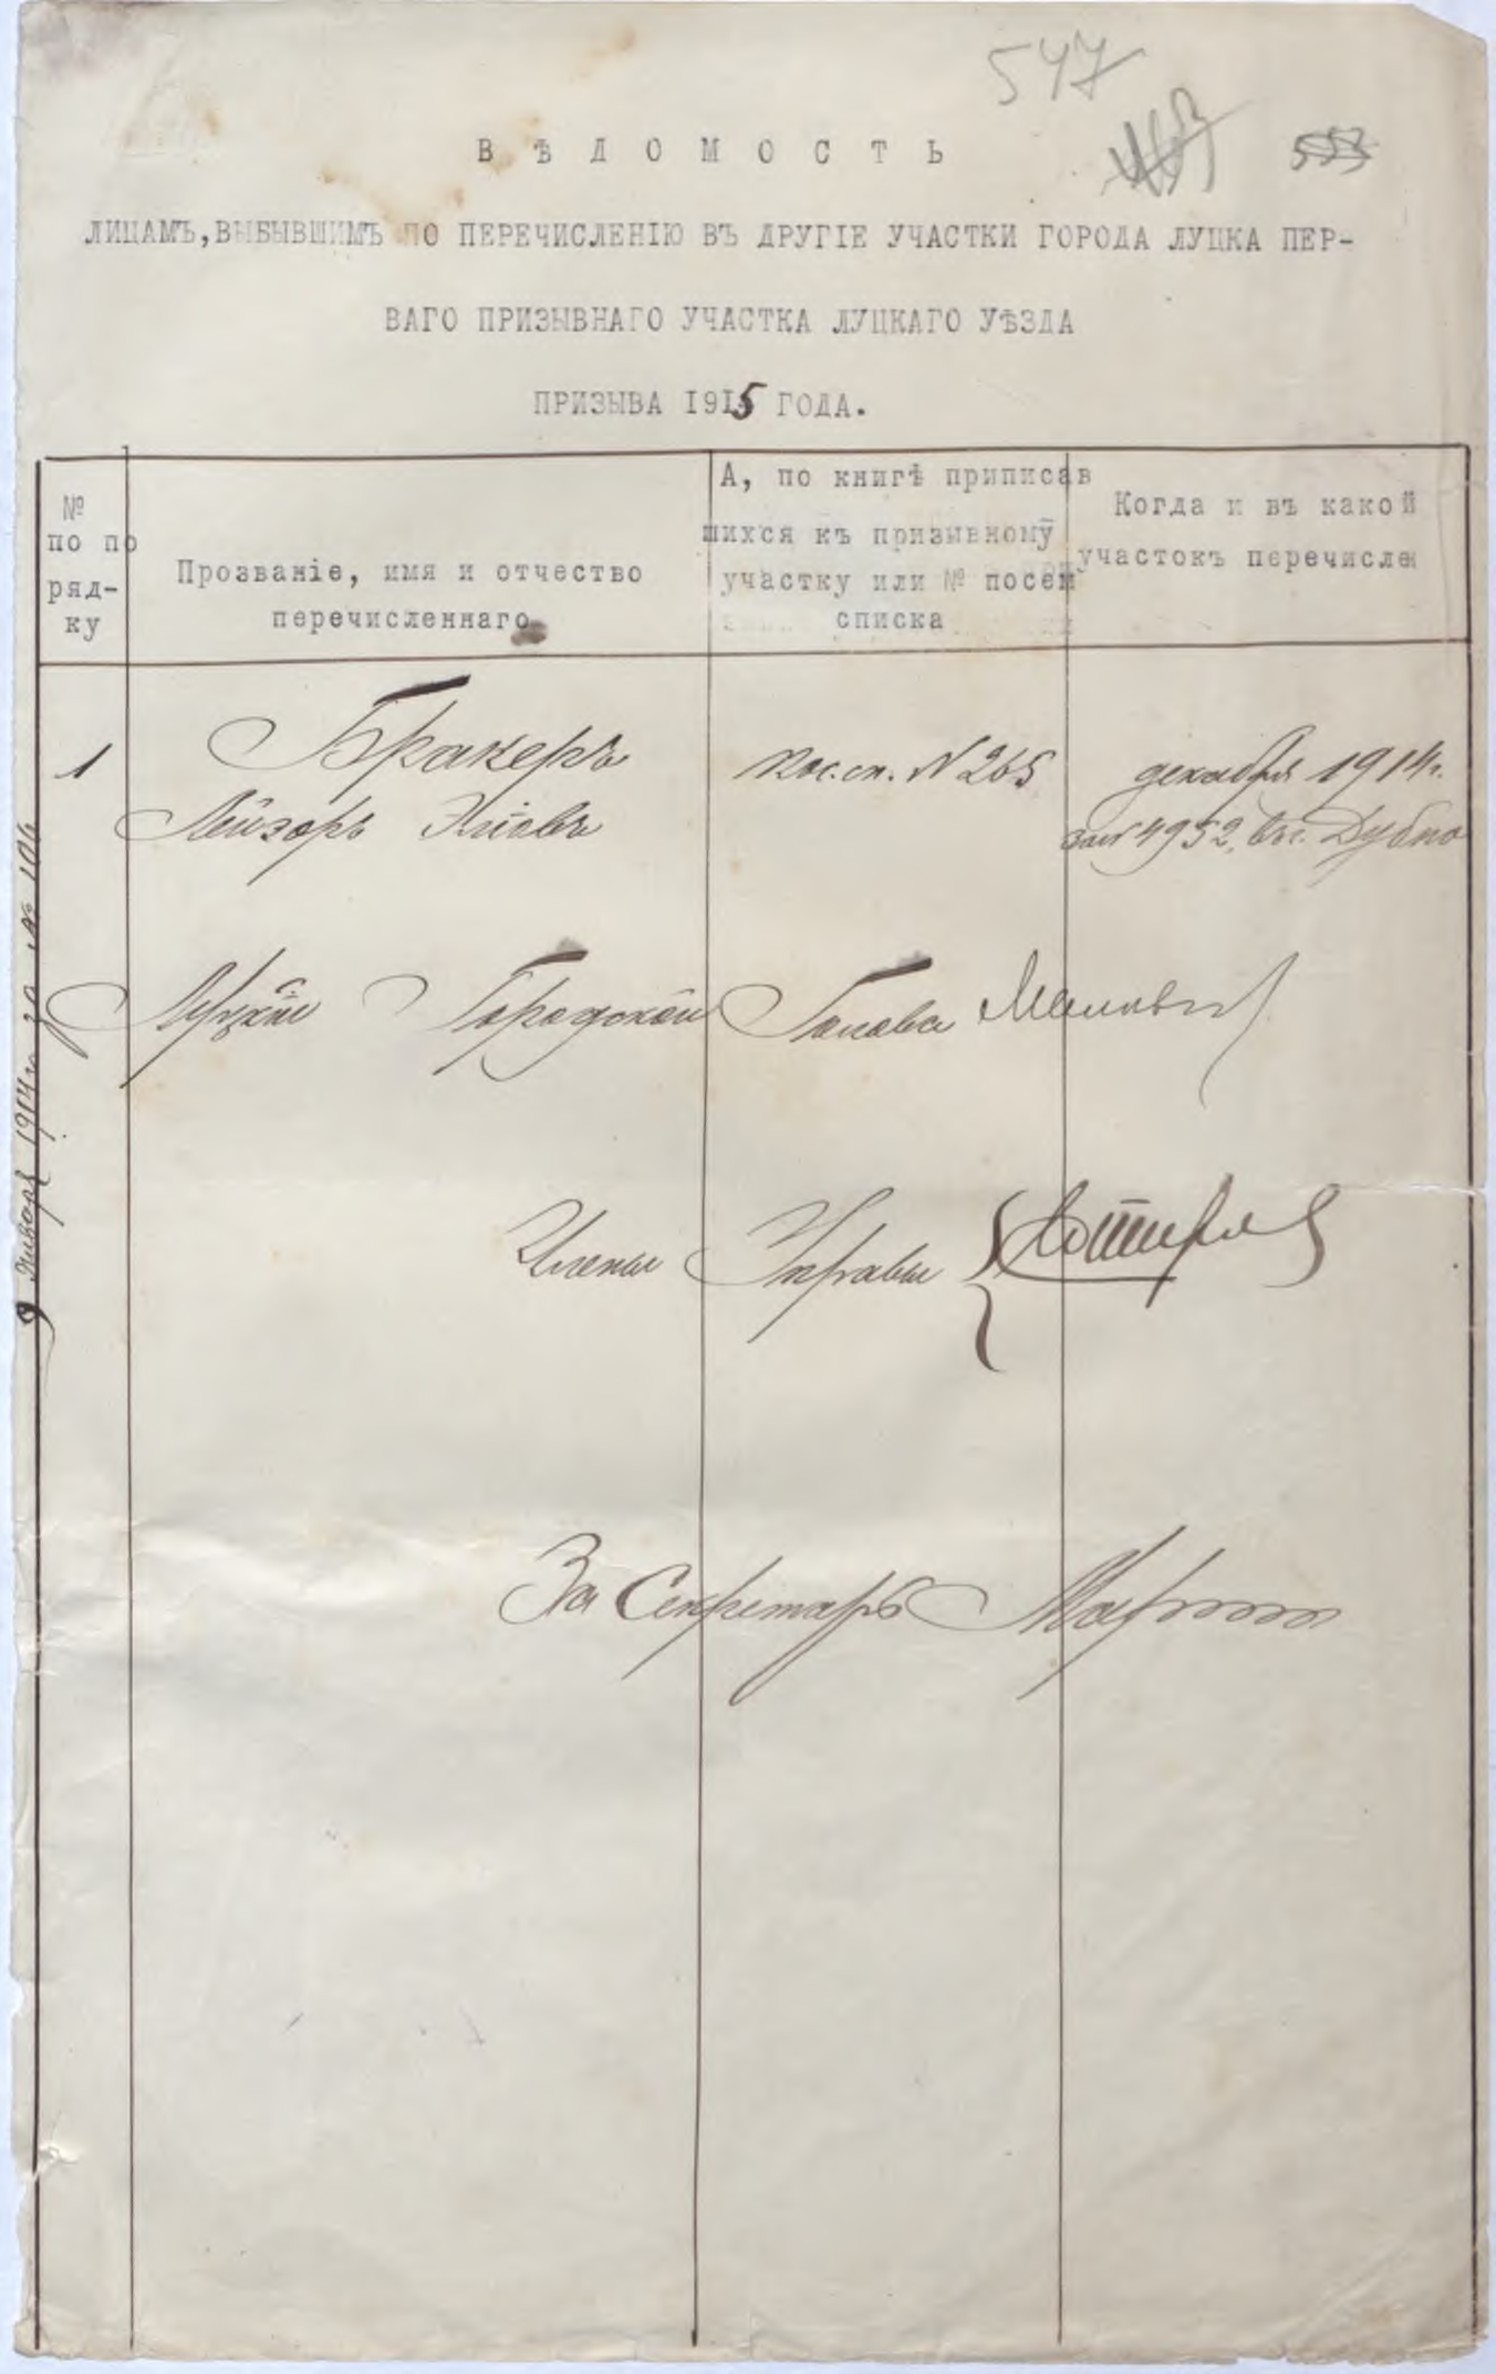 547
553
ВѢДОМОСТЬ
ЛИЦАМЪ, ВЫБЫВШИМЪ ПО ПЕРЕЧИСЛЕНІЮ ВЪ ДРУГІЕ УЧАСТКИ ГОРОДА ЛУЦКА ПЕР-
ВАГО ПРИЗЫВНАГО УЧАСТКА ЛУЦКАГО УѢЗДА
ПРИЗЫВА 1915 ГОДА.
№
по по
ряд-
ку
Прозваніе, имя и отчество
перечисленнаго
А, по книгѣ приписав
шихся къ призывному
участку или № посем
списка
Когда и въ какой
участокъ перечислен
1
Бракеръ
Лейзоръ Хаіовъ
Пос. сп. N 265
декабря 1914 г.
за N 4952, въ г. Дубно
Луцкій Городской Голова
Члены Управы
За Секретаря
9 Января 1914 г. за № 104